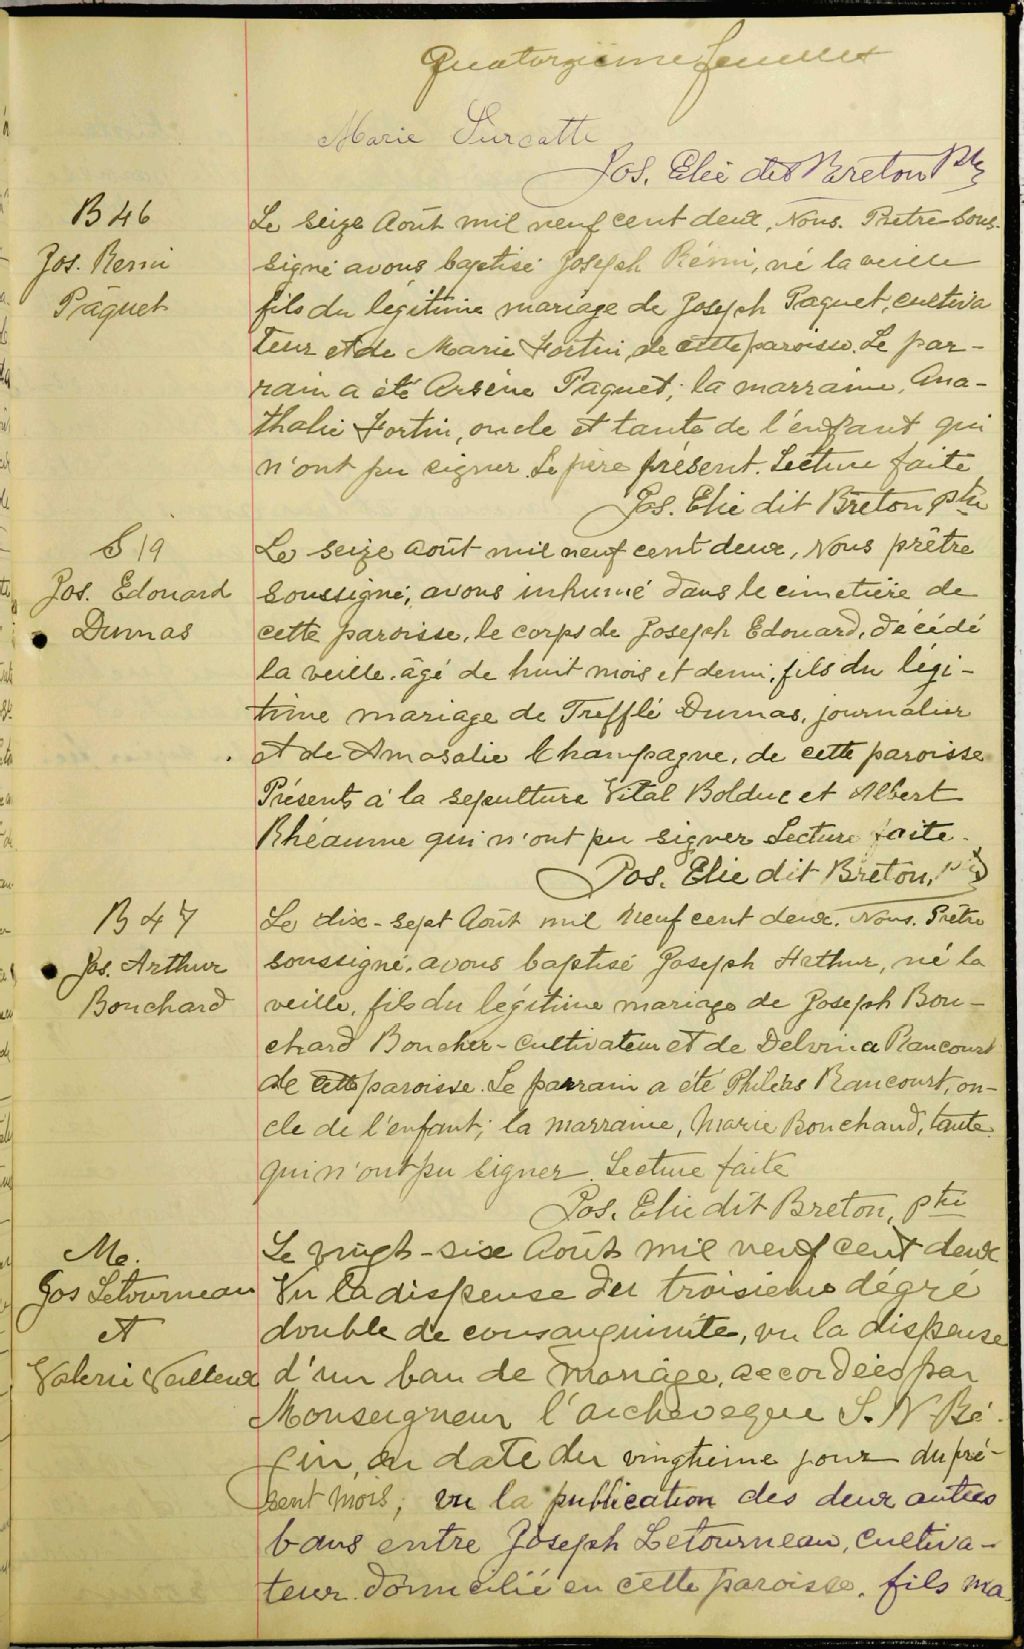 Quatorzième feuillet
Marie Turcotte
Jos. Elie dit Breton Ptre
B 46
Jos. Remi
Pâquet
Le seize Août mil neuf cent deux, Nous. Prêtre sous-
signé avons baptisé Joseph Rémi, né la veille
fils du légitime mariage de Joseph Paquet, cultiva
teur et de Marie Fortin, de cette paroisse. Le par-
rain a été Arsène Paquet; la marraine, Ana-
thalie Fortin, oncle et tante de l'enfant qui
n'ont pu signer. Le père présent. Lecture faite
Jos. Elie dit Breton ptre
S 19
Jos. Edouard
Dumas
Le seize août mil neuf cent deux, Nous prêtre
soussigné, avons inhumé dans le cimetière de
cette paroisse, le corps de Joseph Edouard, décédé
la veille, âgé de huit mois et demi, fils du légi-
time mariage de Trefflé Dumas, journalier
et de Amasalie Champagne, de cette paroisse
Présents à la sepulture Vital Bolduc et Albert
Rhéaume qui n'ont pu signer Lecture faite.
Jos. Elie dit Breton, ptre
B 47
Jos. Arthur
Bouchard
Le dix-sept Août mil neuf cent deux. Nous. Prêtre
soussigné, avons baptisé Joseph Arthur, né la
veille, fils du légitime mariage de Joseph Bou-
chard Boucher - cultivateur et de Delvina Rancourt
de cette paroisse. Le parrain a été Philéas Rancourt, on-
cle de l'enfant; la marraine, Marie Bouchard, tante
qui n'ont pu signer. Lecture faite
Jos. Elie dit Breton, ptre
M.
Jos Letourneau
et
Valerie Veilleux
Le vingt-six Août mil neuf cent deux
Vu la dispense du troisième dégré
double de consanguinité, vu la dispense
d'un ban de mariage, accordées par
Monseigneur l'archevêque L. N. Bé-
gin, en date du vingtième jour du pré-
sent mois; vu la publication des deux autres
bans entre Joseph Letourneau, cultiva-
teur domicilié en cette paroisse, fils ma